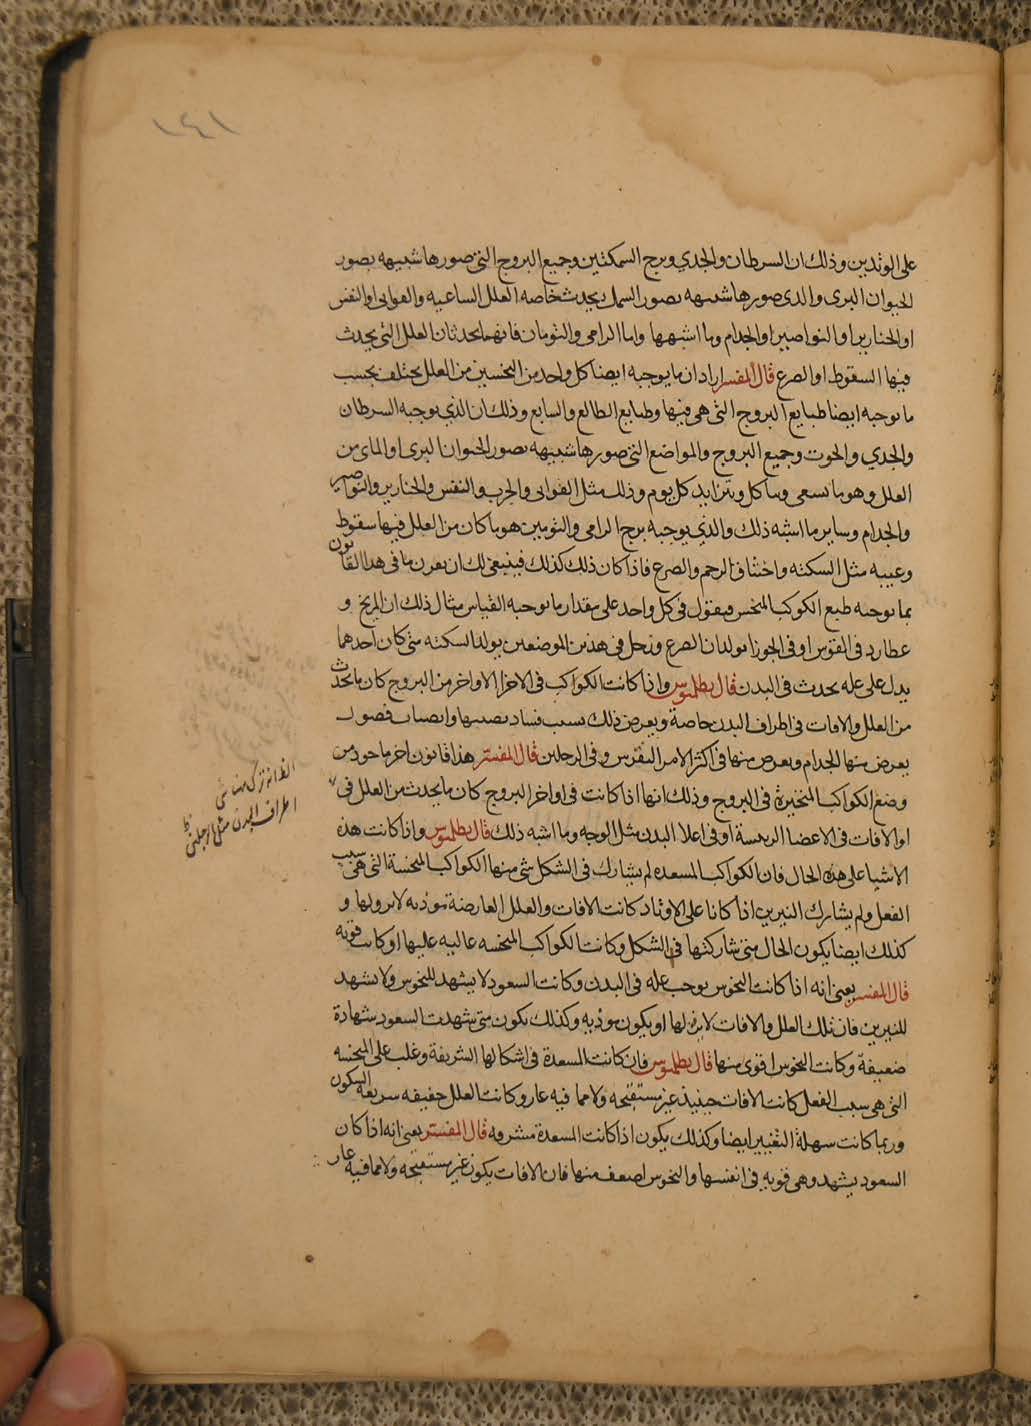 ١٤١
على الوتدين وذلك ان السرطان والجدي وبرج السمكتين وجميع البروج التي صورها شبيهه بصور
الحيوان البرى والذى صورها شبيهه بصور السمك يحدث خاصه العلل الساعيه والقوابى او النقس
او الخنازير او النواصير او الجدام وما اشبهها واما الرامى والتومان فانهما يحدثان العلل التي يحدث
فيها السقوط او الصرع قال المفسر اراد ان ما يوجبه ايضا كل واحد من النحسين من العلل يختلف بحسب
ما توجبه ايضا طبايع البروج التي هي فيها وطبايع الطالع والسابع وذلك ان الذي يوجبه السرطان
والجدي والحوت وجميع البروج والمواضع التي صورها شبيهه بصور الحيوان البرى او المائ من
العلل وهو ما يسعى وياكل ويتزايد كل يوم وذلك مثل القوابى والجرب والنقس والخنازير والنواصير
والجدام وساير ما اشبه ذلك والذي يوجبه برج الرامى والتومين هو ما كان من العلل فيها سقوط
وغيبه مثل السكته واختناق الرحم والصرع فاذا كان ذلك كذلك فينبغى لك ان تعرن ما فى هدا القانون
بما توجبه طبع الكوكب المنحس فيقول فى كل واحد على مقدار ما توجبه القياس مثال ذلك ان المريخ و
عطارد فى القوس او فى الجوزا يولدان الصرع وزحل فى هذين الموضعين يولد السكته متى كان احدهما
يدل على عله تحدث فى البدن قال بطلميوس واذا كانت الكواكب فى الاجزا الاواخر من البروج كان ما يحدث
من العلل والافات فى اطراف البدن خاصة ويعرض ذلك بسبب فساد يصيبها وانصباب فصول
يعرض منها الجدام ويعرض منها فى اكثر الامر النقرس وفى الرجلين قال المفسر هذا قانون اخر ماخود من
وضع الكواكب المتحيرة فى البروج وذلك انها اذا كانت فى اواخر البروج كان ما يحدث من العلل فى
او الافات فى الاعضا الرييسة او فى اعلا البدن مثل الوجه وما اشبه ذلك قال بطلميوس واذا كانت هذه
الاشيا على هذه الحال فان الكواكب المسعده لم يشارك فى الشكل شى منها الكواكب المنحسة التي هي سبب
الفعل ولم يشارك النيرين اذا كانا على الاوتاد كانت الافات والعلل العارضة موذيه لا برو لها و
كذلك ايضا يكون الحال متى شاركتها فى الشكل وكانت الكواكب المنحسه عاليه عليها او كانت قويه
قال المفسر يعنى انه اذا كانت النحوس يوجب عله فى البدن وكانت السعود لا يشهد للنحوس ولا يشهد
للنيرين فان تلك العلل والافات لا برو لها او يكون موذيه وكذلك يكون متى شهدت السعود شهادة
ضعيفة وكانت النحوس اقوى منها قال بطلميوس فان كانت المسعدة فى اشكالها الشريفة وغلب على المنحسه
التى هى سبب الفعل كانت الافات حينيذ غير مستقبحه ولا مما فيه عار وكانت العلل خفيفه سريعة السكون
وربما كانت سهلة التغيير ايضا وكذلك يكون اذا كانت المسعدة مشرقه قال المفسر يعنى انه اذا كان
السعود يشهد وهى قويه فى انفسها والنحوس اضعف منها فان الافات يكون غير مستقبحه ولا مما فيه عار
الظ انه ترك منه شى
اطراف البدن مثل الرجلين